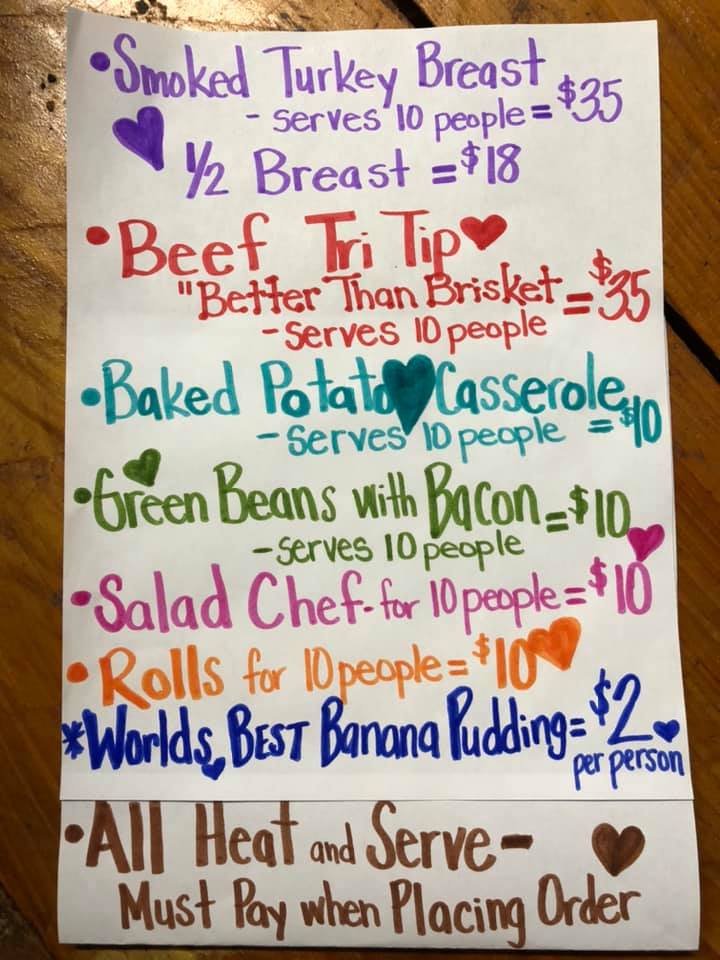 •Smoked Turkey Breast
- serves 10 people = $35
1/2 Breast = $18
•Beef Tri Tip
"Better Than Brisket = $35
- serves 10 people
•Baked Potato Casserole
- serves 10 people = $10
•Green Beans with Bacon = $10
- serves 10 people
•Salad Chef - for 10 people = $10
•Rolls for 10 people = $10
*Worlds BEST Banana Pudding = $2
per person
•All Heat and Serve -
Must Pay when Placing Order